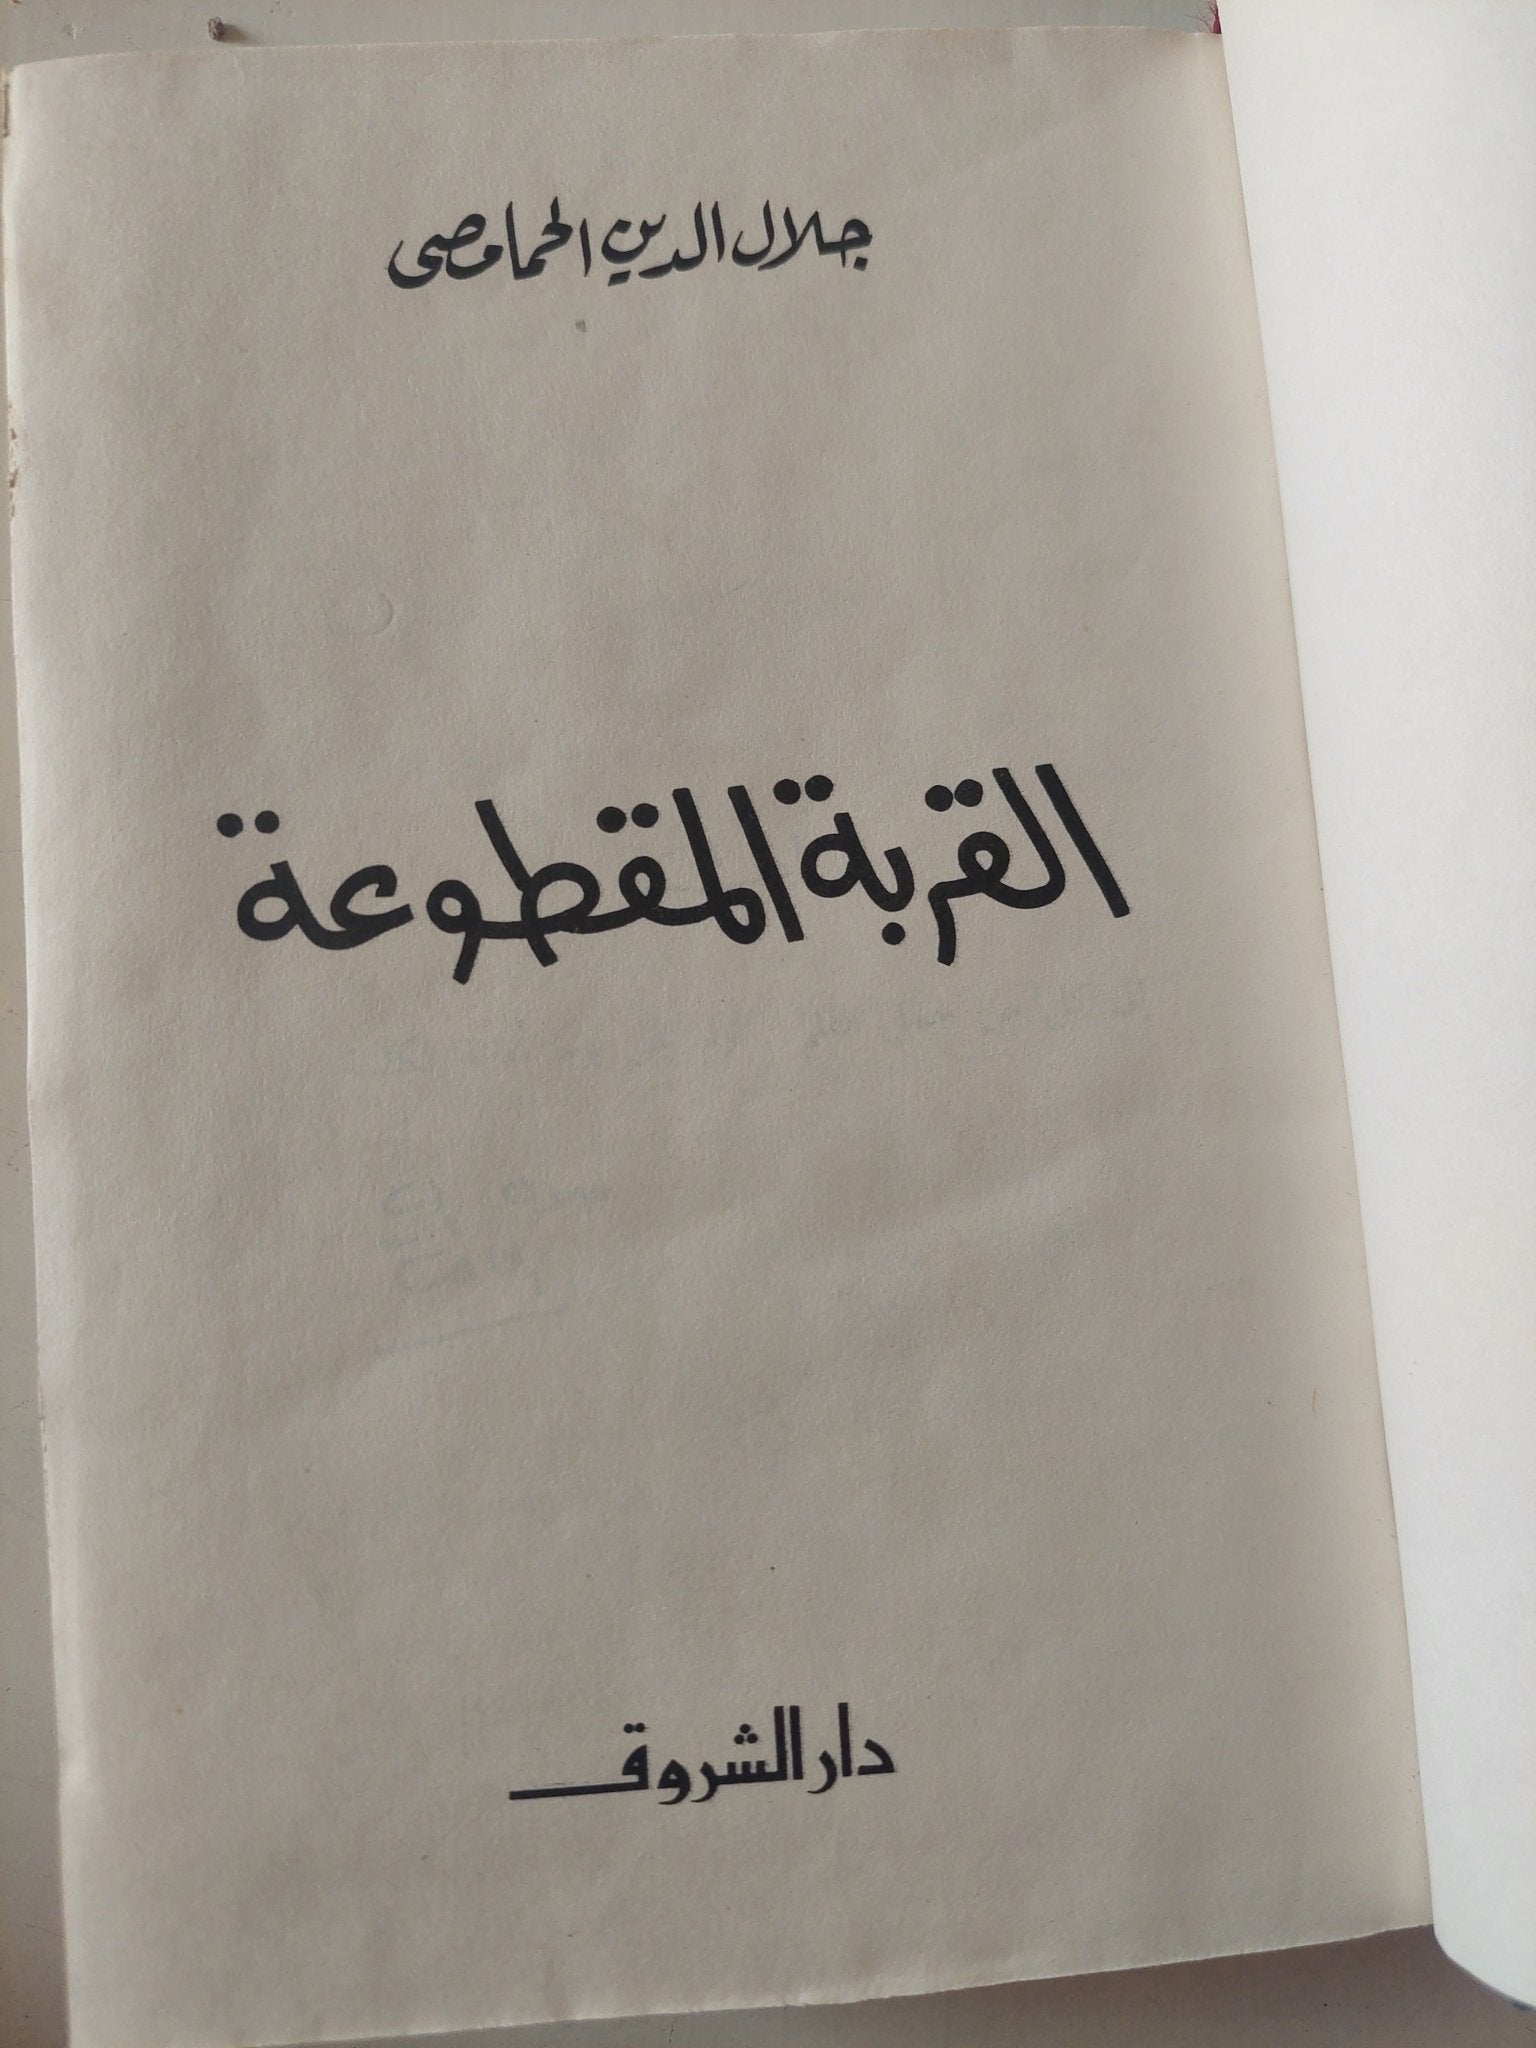 جلال الدين الحمامصى
القربة المقطوعة
دار الشروق